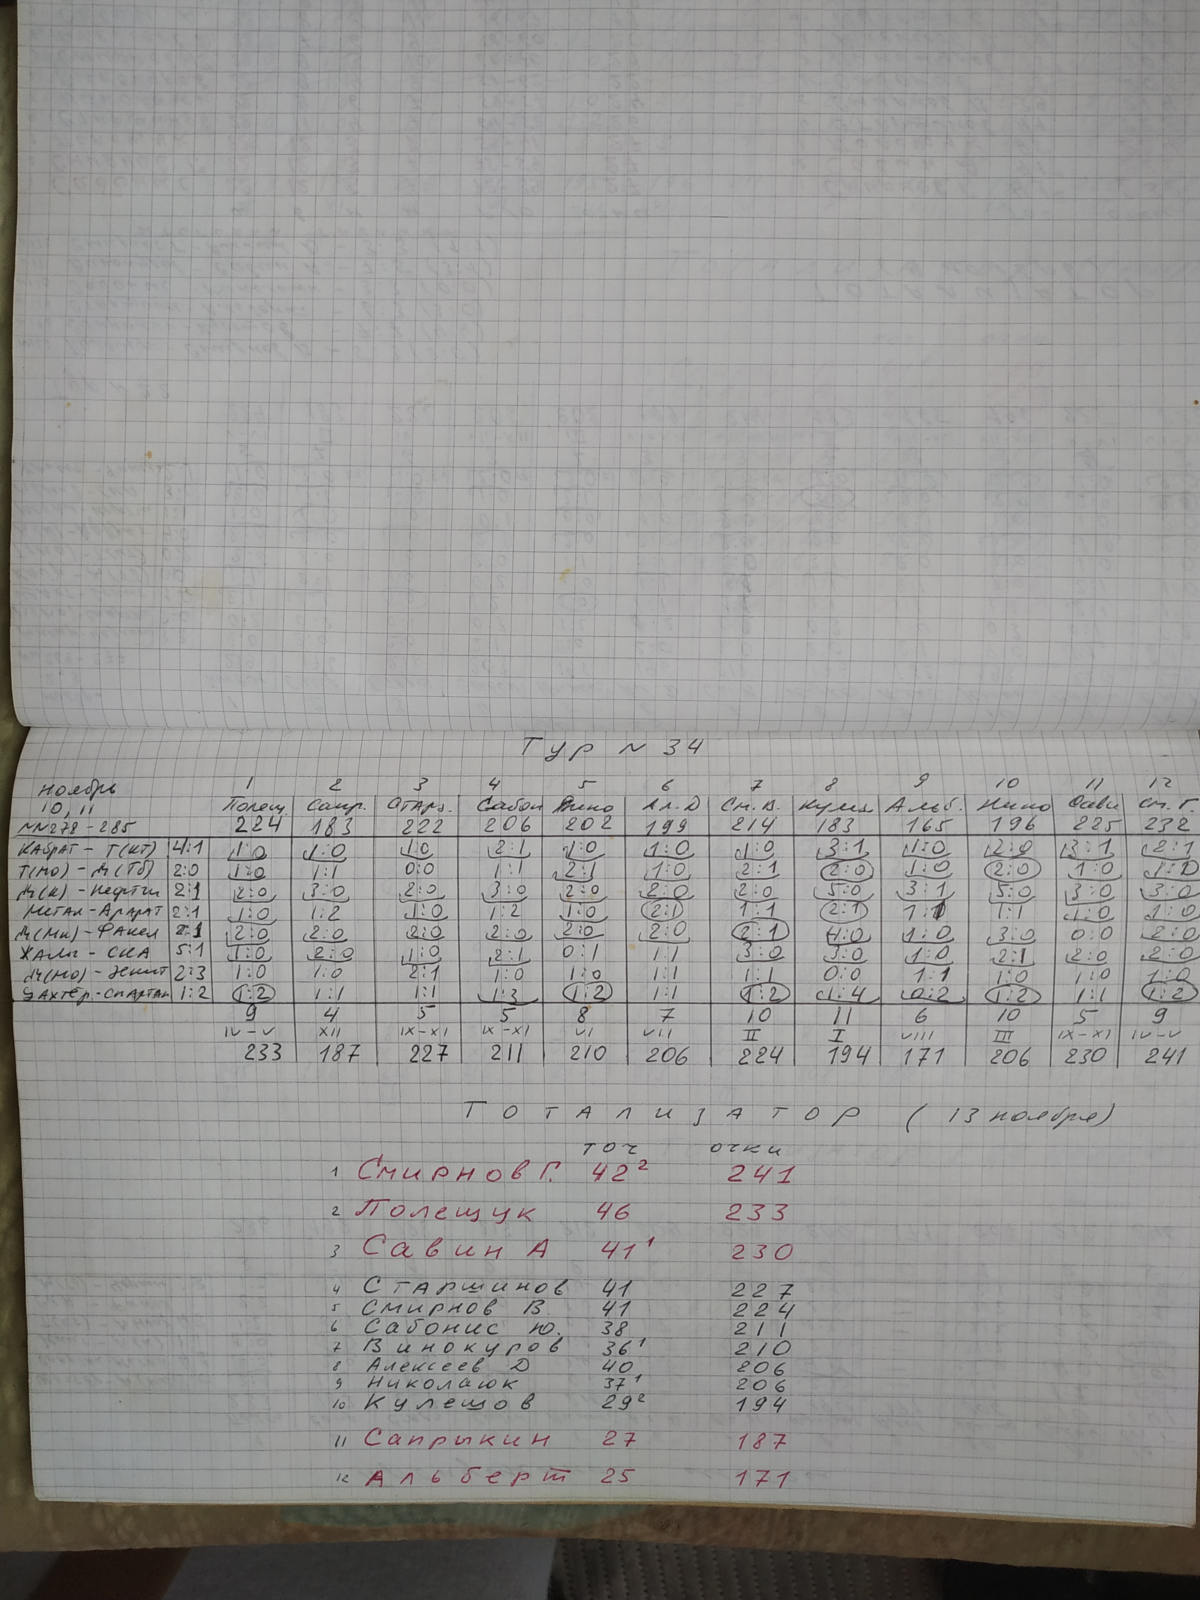 Тур N 34
ноябрь 1 2 3 4 5 6 7 8 9 10 11 12
10, 11 Полещ Сапр. Старш. Сабон Вино Ал.Д См.В. Кулещ Альб. Нико Сави См.Г.
NN278-285 224 183 222 206 202 199 214 183 165 196 225 232
Кайрат - Т(КТ) 4:1 1:0 1:0 1:0 2:1 1:0 1:0 1:0 3:1 1:0 2:0 3:1 2:1
Т(МО) - Д(Тб) 2:0 1:0 1:1 0:0 1:1 2:1 1:0 2:1 2:0 1:0 2:0 1:0 1:0
Д(К) - Нефтчи 2:1 2:0 3:0 2:0 3:0 2:0 2:0 2:0 5:0 3:1 5:0 3:0 3:0
Метал - Арарат 2:1 1:0 1:2 1:0 1:2 1:0 2:1 1:1 2:1 1:1 1:1 1:0 1:0
Д(Мн) - Факел 2:1 2:0 2:0 2:0 2:0 2:0 2:0 2:1 4:0 1:0 3:0 0:0 2:0
Жальг - СКА 5:1 1:0 2:0 1:0 2:1 0:1 1:1 3:0 3:0 1:0 2:1 2:0 2:0
Д(МО) - Зенит 2:3 1:0 1:0 2:1 1:0 1:0 1:1 1:1 0:0 1:1 1:0 1:0 1:0
Шахтёр - Спартак 1:2 1:2 1:1 1:1 1:3 1:2 1:1 1:2 1:4 0:2 1:2 1:1 1:2
9 4 5 5 8 7 10 11 6 10 5 9
IV-V XII IX-XI IX-XI VI VII II I VIII III IX-XI IV-V
233 187 227 211 210 206 224 194 171 206 230 241
Тотализатор (13 ноября)
точ очки
1 Смирнов Г. 42² 241
2 Полещук 46 233
3 Савин А 41¹ 230
4 Старшинов 41 227
5 Смирнов В 41 224
6 Сабонис Ю. 38 211
7 Винокуров 36¹ 210
8 Алексеев Д 40 206
9 Николаюк 37¹ 206
10 Кулешов 29² 194
11 Сапрыкин 27 187
12 Альберт 25 171